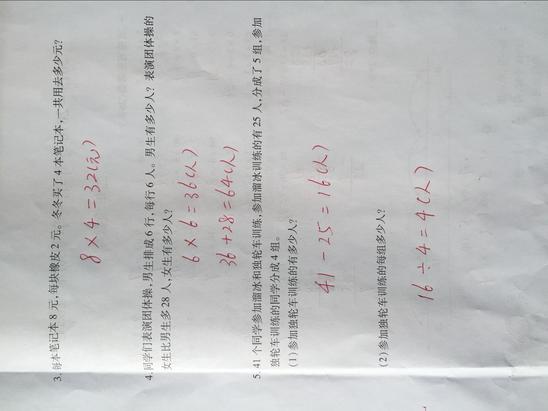 3. 每本笔记本8元,每块橡皮2元。冬冬买了4本笔记本,一共用去多少元?
8×4=32(元)
4. 同学们表演团体操,男生排成6行,每行6人。男生有多少人?表演团体操的
女生比男生多28人,女生有多少人?
6×6=36(人)
36+28=64(人)
5. 41个同学参加溜冰和独轮车训练,参加溜冰训练的有25人,分成了5组,参加
独轮车训练的同学分成4组。
(1)参加独轮车训练的有多少人?
41-25=16(人)
(2)参加独轮车训练的每组多少人?
16÷4=4(人)